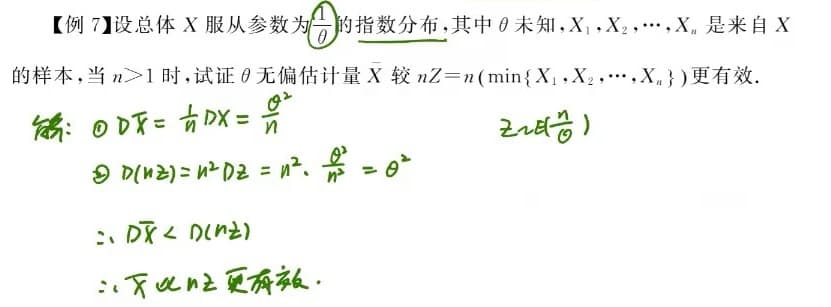 【例 7】设总体 X 服从参数为 1/θ 的指数分布,其中 θ 未知,X₁,X₂,⋯,Xₙ 是来自 X
的样本,当 n>1 时,试证 θ 无偏估计量 X̄ 较 nZ=n(min{X₁,X₂,⋯,Xₙ})更有效.
解: ① DX̄ = 1/n DX = θ²/n Z~E(n/θ)
② D(nZ)=n²DZ = n²·θ²/n² = θ²
∴ DX̄ < D(nZ)
∴ X̄ 比 nZ 更有效.